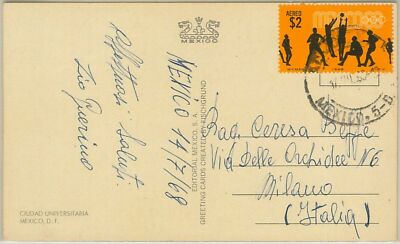 MEXICO
AEREO
$2
MEXICO
MEXICO.5-D.
Affettuosi Saluti
Zio Guerino
MEXICO 14/7/68
EDITORIAL MEXICO, S. A.
GREETING CARDS CREATED BY FISCHGRUND
Rag. Ceresa Beppe
Via Delle Orchidee N6
Milano
(Italia)
CIUDAD UNIVERSITARIA
MEXICO, D. F.